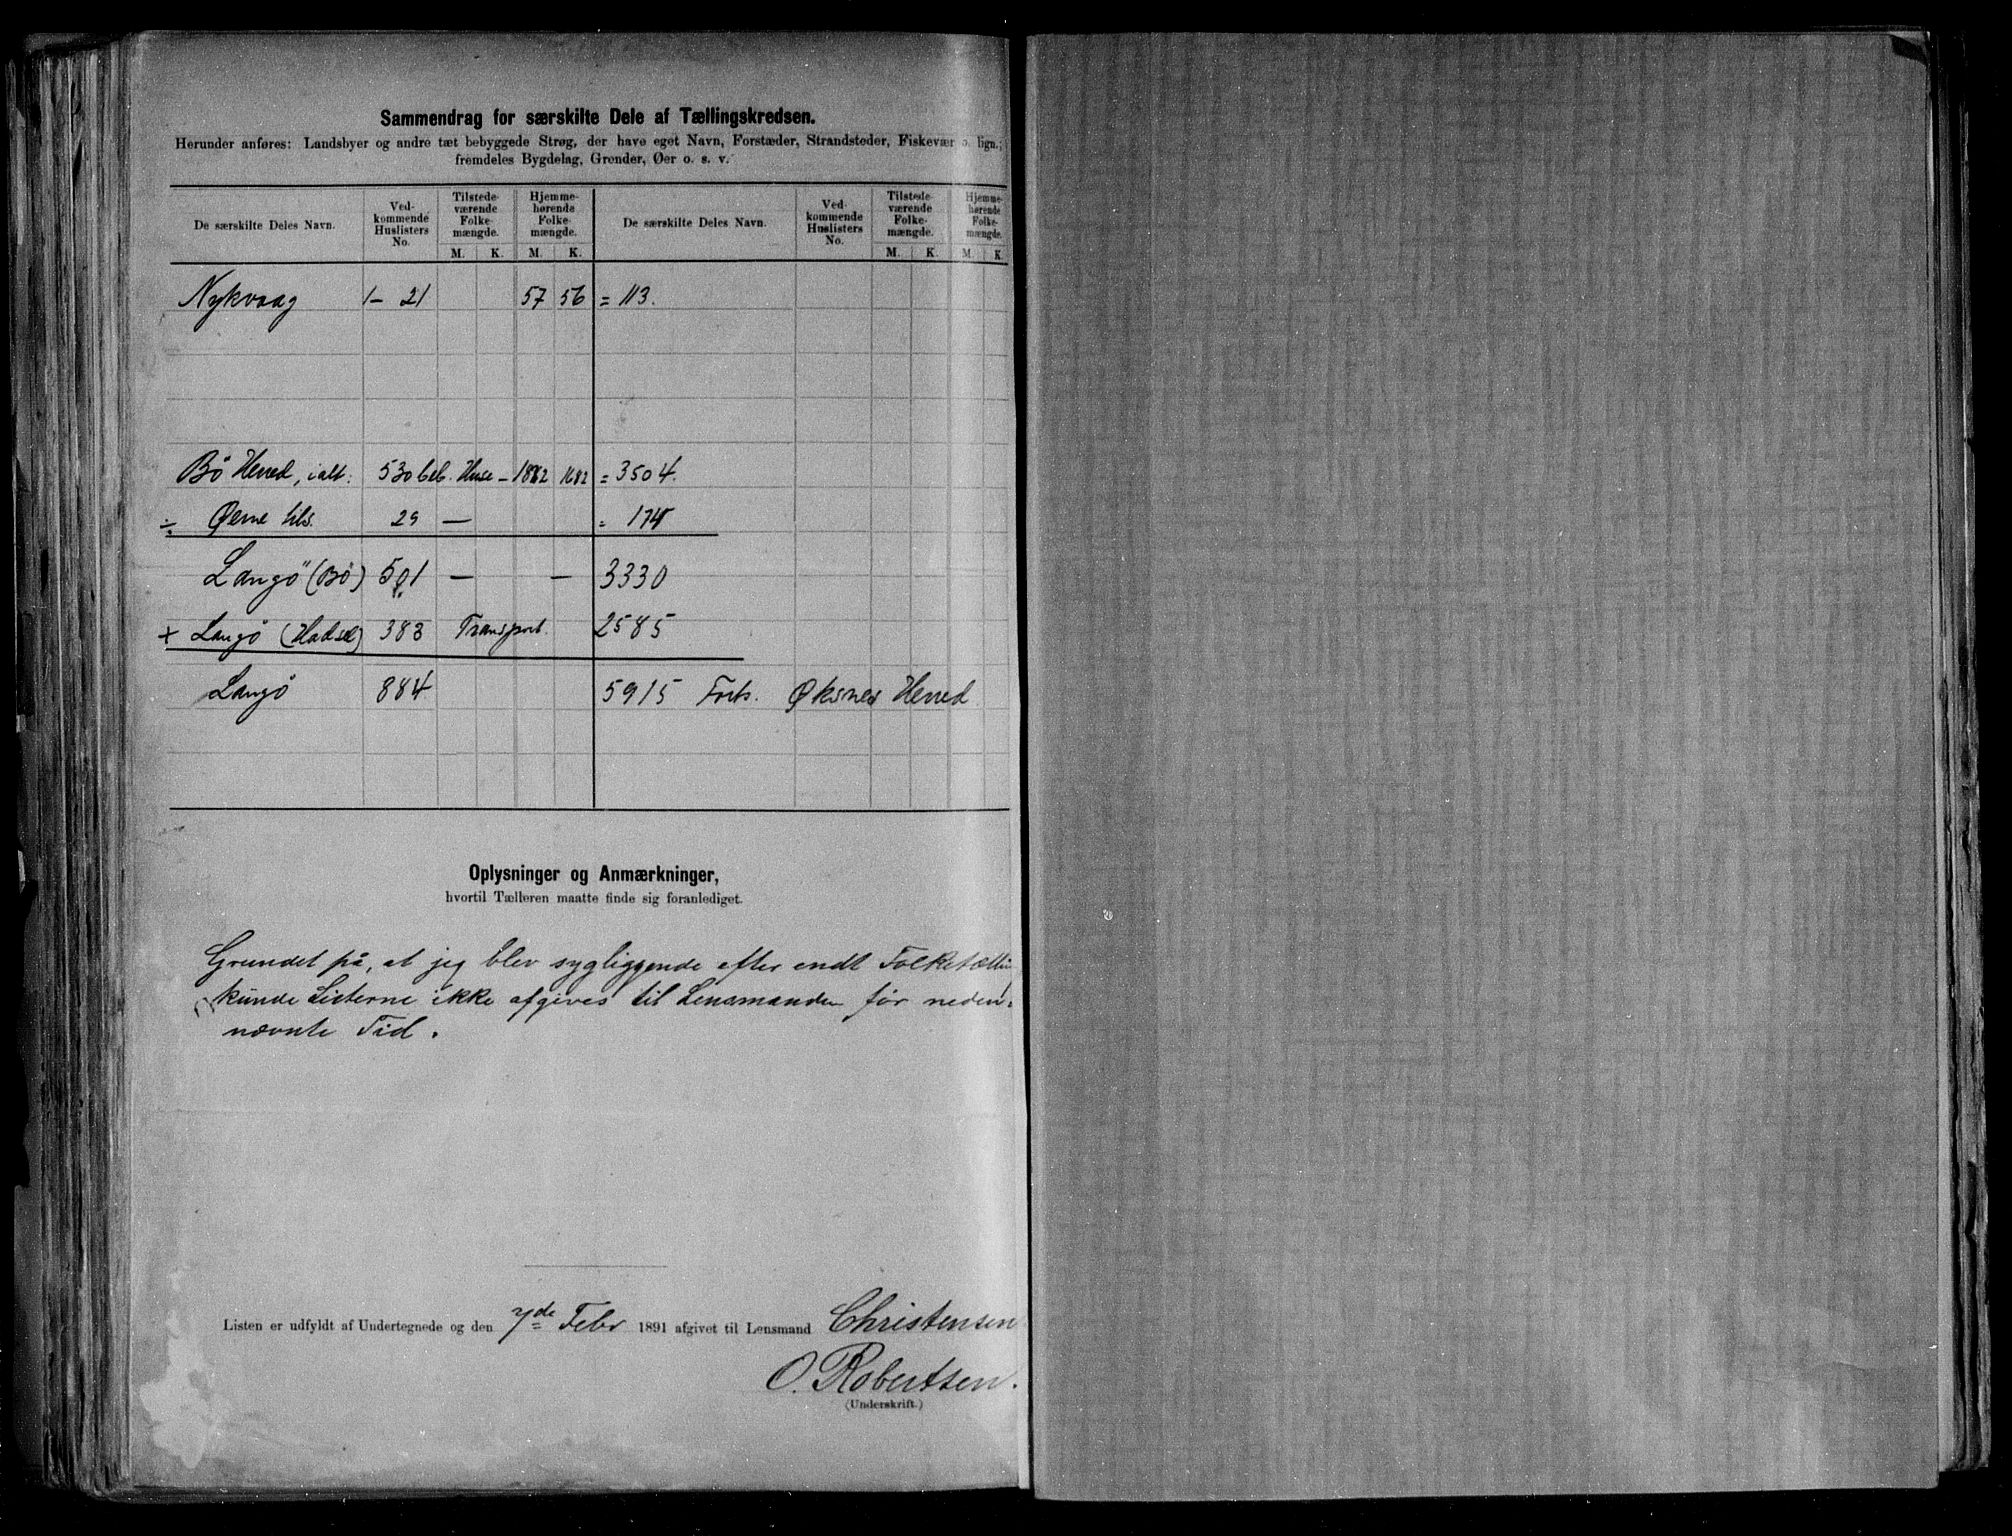 Sammendrag for særskilte Dele af Tællingskredsen.
Herunder anføres: Landsbyer og andre tæt bebyggede Strøg, der have eget Navn, Forstæder, Strandsteder, Fiskevær o. lign.;
fremdeles Bygdelag, Grender, Øer o. s. v.
De særskilte Deles Navn. Ved-kommende Huslisters No. Tilstede-værende Folke-mængde. Hjemme-hørende Folke-mængde. De særskilte Deles Navn. Ved-kommende Huslisters No. Tilstede-værende Folke-mængde. Hjemme-hørende Folke-mængde.
M. K. M. K. M. K. M. K.
Nykvaag 1- 21 57 56 = 113.
Bö Herred, ialt: 530 beb. Huse - 1822 1682 = 3504.
÷ Øerne tils. 29 — = 174
Langö (Bö) 501 — — 3330
+ Langö (Hadsel) 383 Transport. 2585
Langö 884 5915 Forts. Øksnes Herred
Oplysninger og Anmærkninger,
hvortil Tælleren maatte finde sig foranlediget.
Grundet på, at jeg blev sygliggende efter endt Folketælli
kunde Listerne ikke afgives til Lensmanden før neden-
nævnte Tid.
Listen er udfyldt af Undertegnede og den 7de Febr 1891 afgivet til Lensmand Christensen
O. Robertsen.
(Underskrift.)